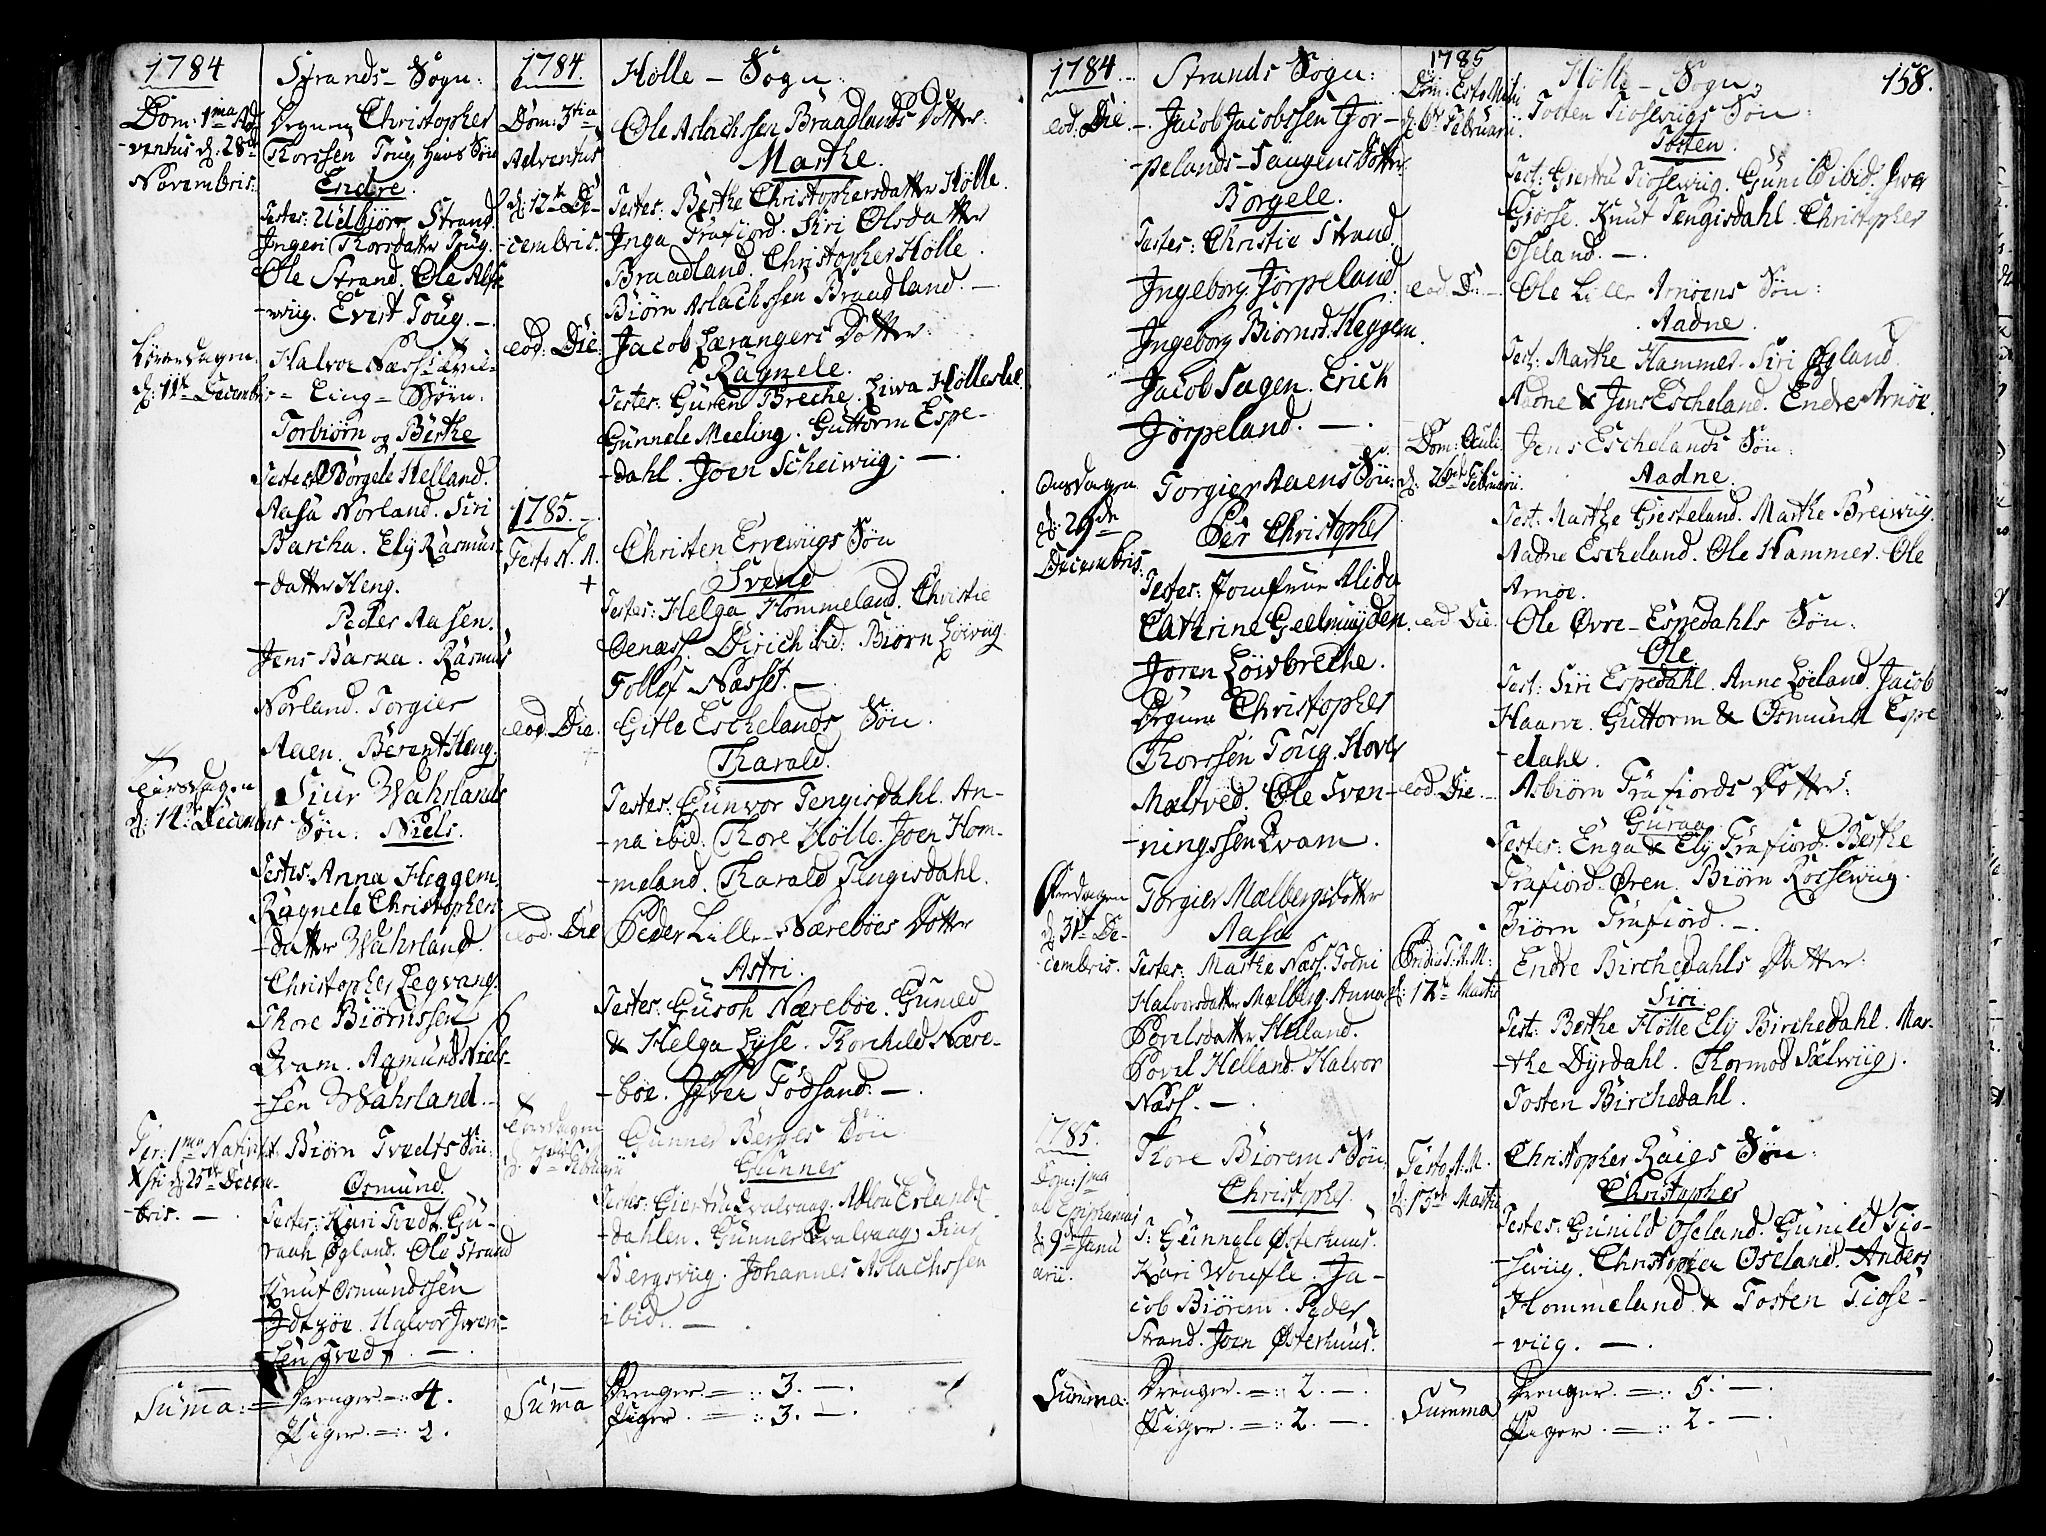 1784
Strands - Sogn:
Dom: 1ma Ad-
-ventus d. 28de
Novembris.
Degnen Christopher
Thorssen Toug hans Søn
Endre.
Testes: Udbiør Strand.
Ingeri Thorsdatter Toug.
Ole Strand. Ole Alss-
-wiig. Evert Toug. -.
Løverdagen
d. 11te Decembris
Halvor Næss
- Ling - Børn:
Torbiørn og Berthe
Testes: Børgele Helland.
Aasa Norland. Siri
Barcka. Elj Rasmus-
-datter Heng.
Peder Aasen.
Jens Barka. Rasmus
Norland. Torgier
Aaen. Berent Heng.
Tirsdagen
d. 14de Decembris
Siur Wahrlands
Søn: Niels.
Testes: Anna Heggem.
Ragnele Christophers-
-datter Wahrland.
Christopher Legvang.
Thore Biørnssen
Qvam. Aamund Niels-
-sen Wahrland. -
Fer: 1ma Nativit.
Xsti d. 25de Decem-
-bris. -
Biørn Tvedts Søn:
Osmund.
Testes: Kari Tvedt. Gu-
raah Øgland. Ole Strand
Knut Osmundssen
Idtzøe. Halvor Iwers-
-sen Tvedt. -.
Summa: = Drenger = :: 4.
Piger = :: 2.
1784.
Hølle - Sogn:
Dom: 3tia
Adventus
d. 12te De-
-cembris.
Ole Aslachssen Braadlands Dotter:
Marthe.
Testes: Berthe Christophersdatter Hølle.
Inga Frafiord. Siri Olsdatter
Braadland. Christopher Hølle.
Biørn Aslachssen Braadland. -.
eod: Die:
Jacob Lærangers Dotter:
Ragnele.
Testes: Guren Breche. Liwa Hølleslie.
Gunnele Meeling. Guttorm Espe-
-dahl. Joen Scheiwiig. -.
1785. -
Festo N. A.
+
Christen Errewiigs Søn
Svend
Testes: Helga Hommeland. Christie
Oenæss. Dirich ibid: Biørn Løiwiig
Tollef Næsset. -
eod. Die.
+
Gitle Eschelands Søn.
Tharald.
Testes: Gunvor Tengisdahl. An-
-na ibid: Thore Hølle. Joen Hom-
-meland. Tharald Tengisdahl.
eod. Die
Peder Lille - Nærebøes Dotter
Astri.
Testes: Guroh Nærebøe. Guneld
& Helga Lyse. Thorchild Nære-
-bøe. Jfver Fødsand. -.
Torsdagen
d. 3die Februarii
Gunner Berges Søn
Gunner
Testes: Giertru Qvalvaag. Ablou Erlands-
-dahlen. Gunner Qvalvaag. Siur
Bergsviig. Johannes Aslachssen
ibid. -.
Summa Drenger. = :: 3. -.
Piger. = :: 3. -.
1784. -
Strands Sogn:
eod. Die. -
Jacob Jacobssen Jør-
-pelands - Saugens Dotter
Børgele.
Testes: Christie Strand.
Ingeborg Jørpeland.
Ingeborg Biørnsd. Heggem.
Jacob Sagen. Erich
Jørpeland. -.
Onsdagen
d. 29de
Decembris.
Torgier Aaens Søn:
Per Christopher
Testes: Jomfrue Alida
Catrine Geelmuyden.
Joren Løvbreche.
Degnen Christopher
Thorssen Toug. Hover
Mæltved. Ole Sven-
-ningssen Qvam.
Fredagen
d. 31te De-
-cembris.
Torgier Mælbergs Dotter
Aasa
Testes: Marthe Næss. Todni
Halvorsdatter Mælberg. Anna
Povelsdatter Helland.
Povel Helland. Halvor
Næss. -.
1785.
Dom: 1ma
a Epiphanias
d. 9de Janu
arii.
Thore Biørems Søn:
Christopher.
T: Gunnele Østerhuus.
Kari Woufle. Ja-
cob Biørem. Peder
Strand. Joen Østerhuus.
Summa: Drenger. = :: 2. -.
Piger. = :: 2. -.
1785
Hølle - Sogn
158.
Dom: Esto Mihi
d. 6te Februarii.
Tosten Tiosewiigs Søn:
Tosten.
Test: Giertru Tiosewiig. Gunild ibid. Iwer
Giøsse. Knut Tengisdahl. Christopher
Oseland. -.
eod. Di: -
Ole Lille Arnøens Søn:
Aadne.
Test: Marthe Hammer. Siri Øgland.
Aadne & Jens Escheland. Endre Arnøe.
Dom: Oculi
d. 26de Februarii.
Jens Eschelands Søn:
Aadne.
Test: Marthe Giesteland. Marthe Breiwiig.
Aadne Escheland. Ole Hammer. Ole
Arnøe.
eod. Die.
Ole Øvre - Espedahls Søn:
Ole
Test: Siri Espedahl. Anne Løeland. Jacob
Haarre. Guttorm & Osmund Espe
-dahl.
eod. Die. -
Asbiørn Frafiords Dotter:
Guraa
Testes: Enga & Elj Frafiord. Berthe
Frafiord. Øren. Biørn Rossewiig.
Biørn Frafiord. -.
Pridie F. A. M:
d. 12te Martii
Endre Birchedahls Datter:
Siri.
Test: Berthe Hølle Elj Birchedahl. Mar-
-the Dyrdahl. Thormod Sælwiig.
Tosten Birchedahl.
Festo A. M.
d. 13de Martii
Christopher Raigs Søn:
Christopher
Testes: Gunild Oseland. Gunild Tio-
-sewiig. Christopher Oseland. Anders
Hommeland & Tosten Tiose-
-viig. -.
Summa Drenger. = :: 5. -.
Piger. = :: 2. -.